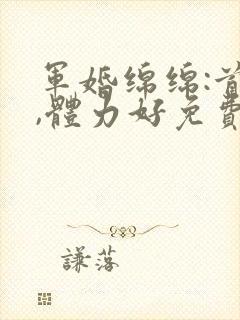 軍婚綿綿:首
,體力好免費
謙落